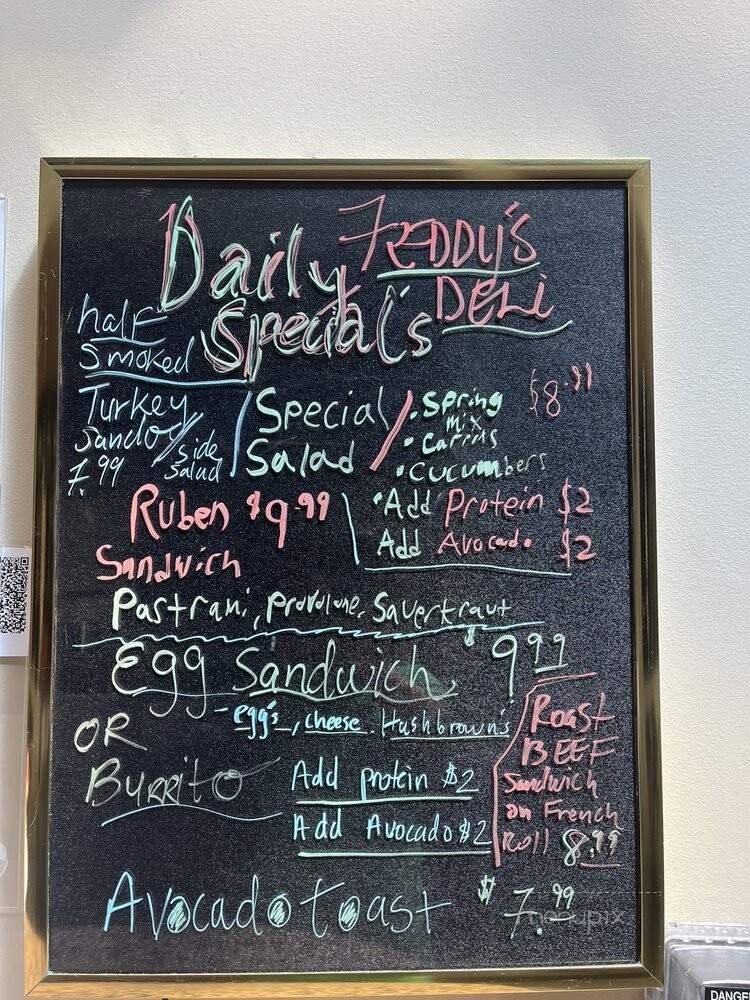 Daily
Special's
FREDDY'S
DELi
half
Smoked
Turkey
Sando/
Side
Salad
7.99
Special
Salad
• Spring
mix
• Carrits
• cucumbers
$8.99
• Add Protein $2
Add Avocado $2
Ruben $9.99
Sandwich
Pastrami, Provolone, Sauerkraut
Egg Sandwich $9.99
- egg's, cheese. Hashbrown's
OR
BURRITO
Add protein $2
Add Avocado $2
Roast
BEEF
Sandwich
on French
Roll 8.99
Avocado toast $7.99
menupix
DANGE